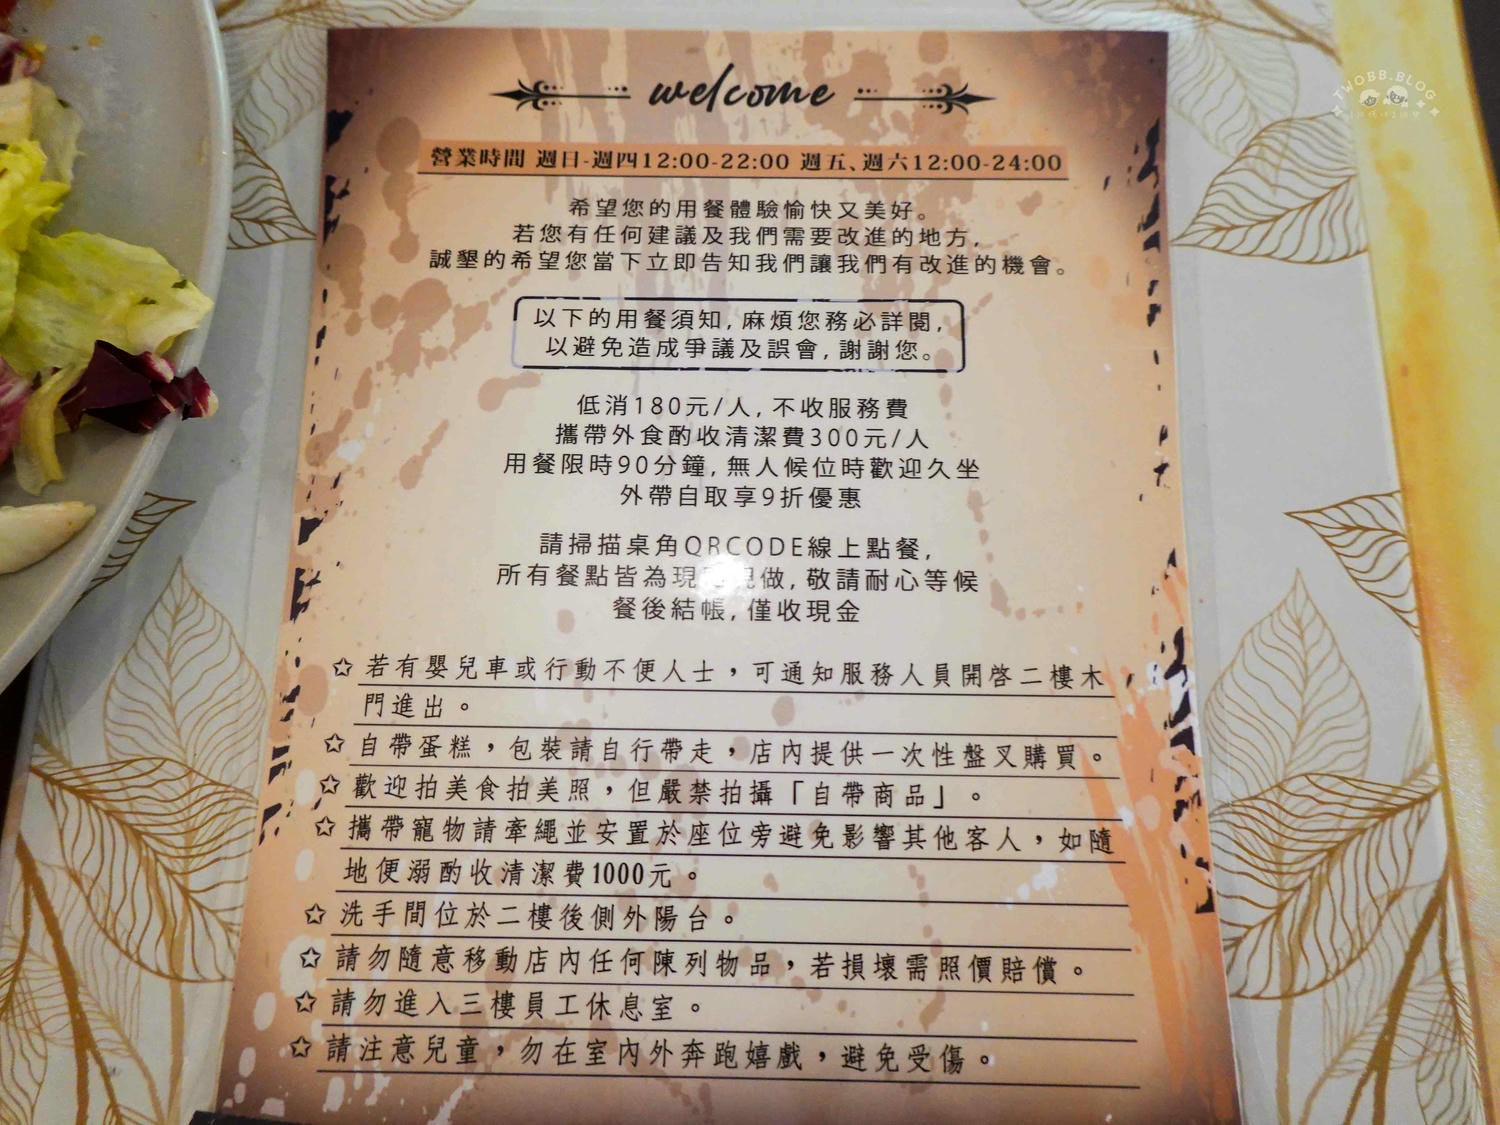 TWOBB.BLOG
welcome
營業時間 週日-週四12:00-22:00 週五、週六12:00-24:00
希望您的用餐體驗愉快又美好。
若您有任何建議及我們需要改進的地方,
誠墾的希望您當下立即告知我們讓我們有改進的機會。
以下的用餐須知,麻煩您務必詳閱,
以避免造成爭議及誤會,謝謝您。
低消180元/人,不收服務費
攜帶外食酌收清潔費300元/人
用餐限時90分鐘,無人候位時歡迎久坐
外帶自取享9折優惠
請掃描桌角QRCODE線上點餐,
所有餐點皆為現 做,敬請耐心等候
餐後結帳,僅收現金
☆若有嬰兒車或行動不便人士，可通知服務人員開啓二樓木
門進出。
☆自帶蛋糕，包裝請自行帶走，店內提供一次性盤叉購買。
☆歡迎拍美食拍美照，但嚴禁拍攝「自帶商品」。
☆攜帶寵物請牽繩並安置於座位旁避免影響其他客人，如隨
地便溺酌收清潔費1000元。
☆洗手間位於二樓後側外陽台。
☆請勿隨意移動店內任何陳列物品，若損壞需照價賠償。
☆請勿進入三樓員工休息室。
☆請注意兒童，勿在室內外奔跑嬉戲，避免受傷。